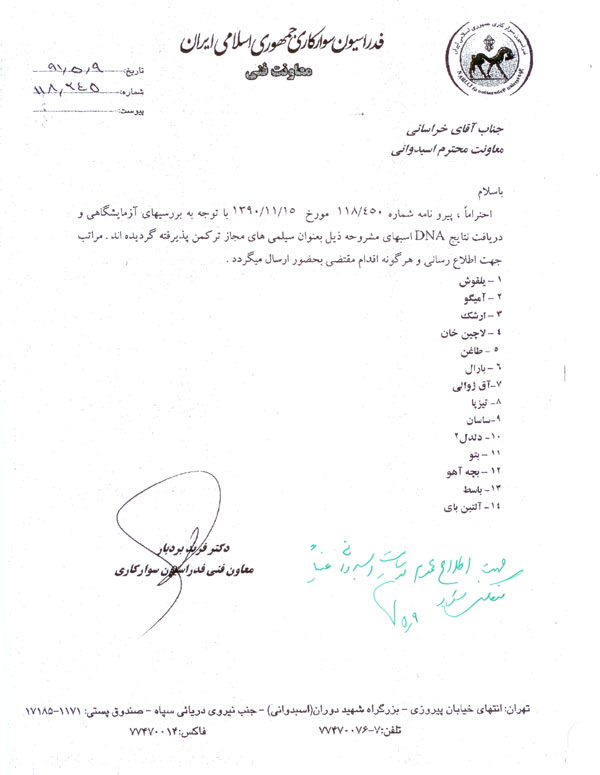 فدراسیون سوارکاری جمهوری اسلامی ایران
معاونت فنی
تاریخ: ۹۱٫۵٫۹
شماره: ۱۱۸٫۲۴۵
پیوست:
جناب آقای خراسانی
معاونت محترم اسبدوانی
باسلام
احتراماً ، پیرو نامه شماره ۱۱۸/۴۵۰ مورخ ۱۳۹۰/۱۱/۱۵ با توجه به بررسیهای آزمایشگاهی و
دریافت نتایج DNA اسبهای مشروحه ذیل بعنوان سیلمی های مجاز ترکمن پذیرفته گردیده اند . مراتب
جهت اطلاع رسانی و هرگونه اقدام مقتضی بحضور ارسال میگردد .
۱ - یلقوش
۲ - آمیگو
۳ - ارشک
۴ - لاچین خان
۵ - طاغن
۶ - بارال
۷-آق ژوالی
۸- تیزپا
۹-ساسان
۱۰- دلدل۲
۱۱ - بتو
۱۲ - بچه آهو
۱۳- باسط
۱۴ - آلتین بای
دکتر فرید بردبار
معاون فنی فدراسیون سوارکاری
جهت اطلاع
۵٫۹
تهران: انتهای خیابان پیروزی - بزرگراه شهید دوران(اسبدوانی) - جنب نیروی دریائی سپاه - صندوق پستی: ۱۱۷۱-۱۷۱۸۵
تلفن:۷-۷۷۴۷۰۰۷۶ فاکس:۷۷۴۷۰۰۱۴